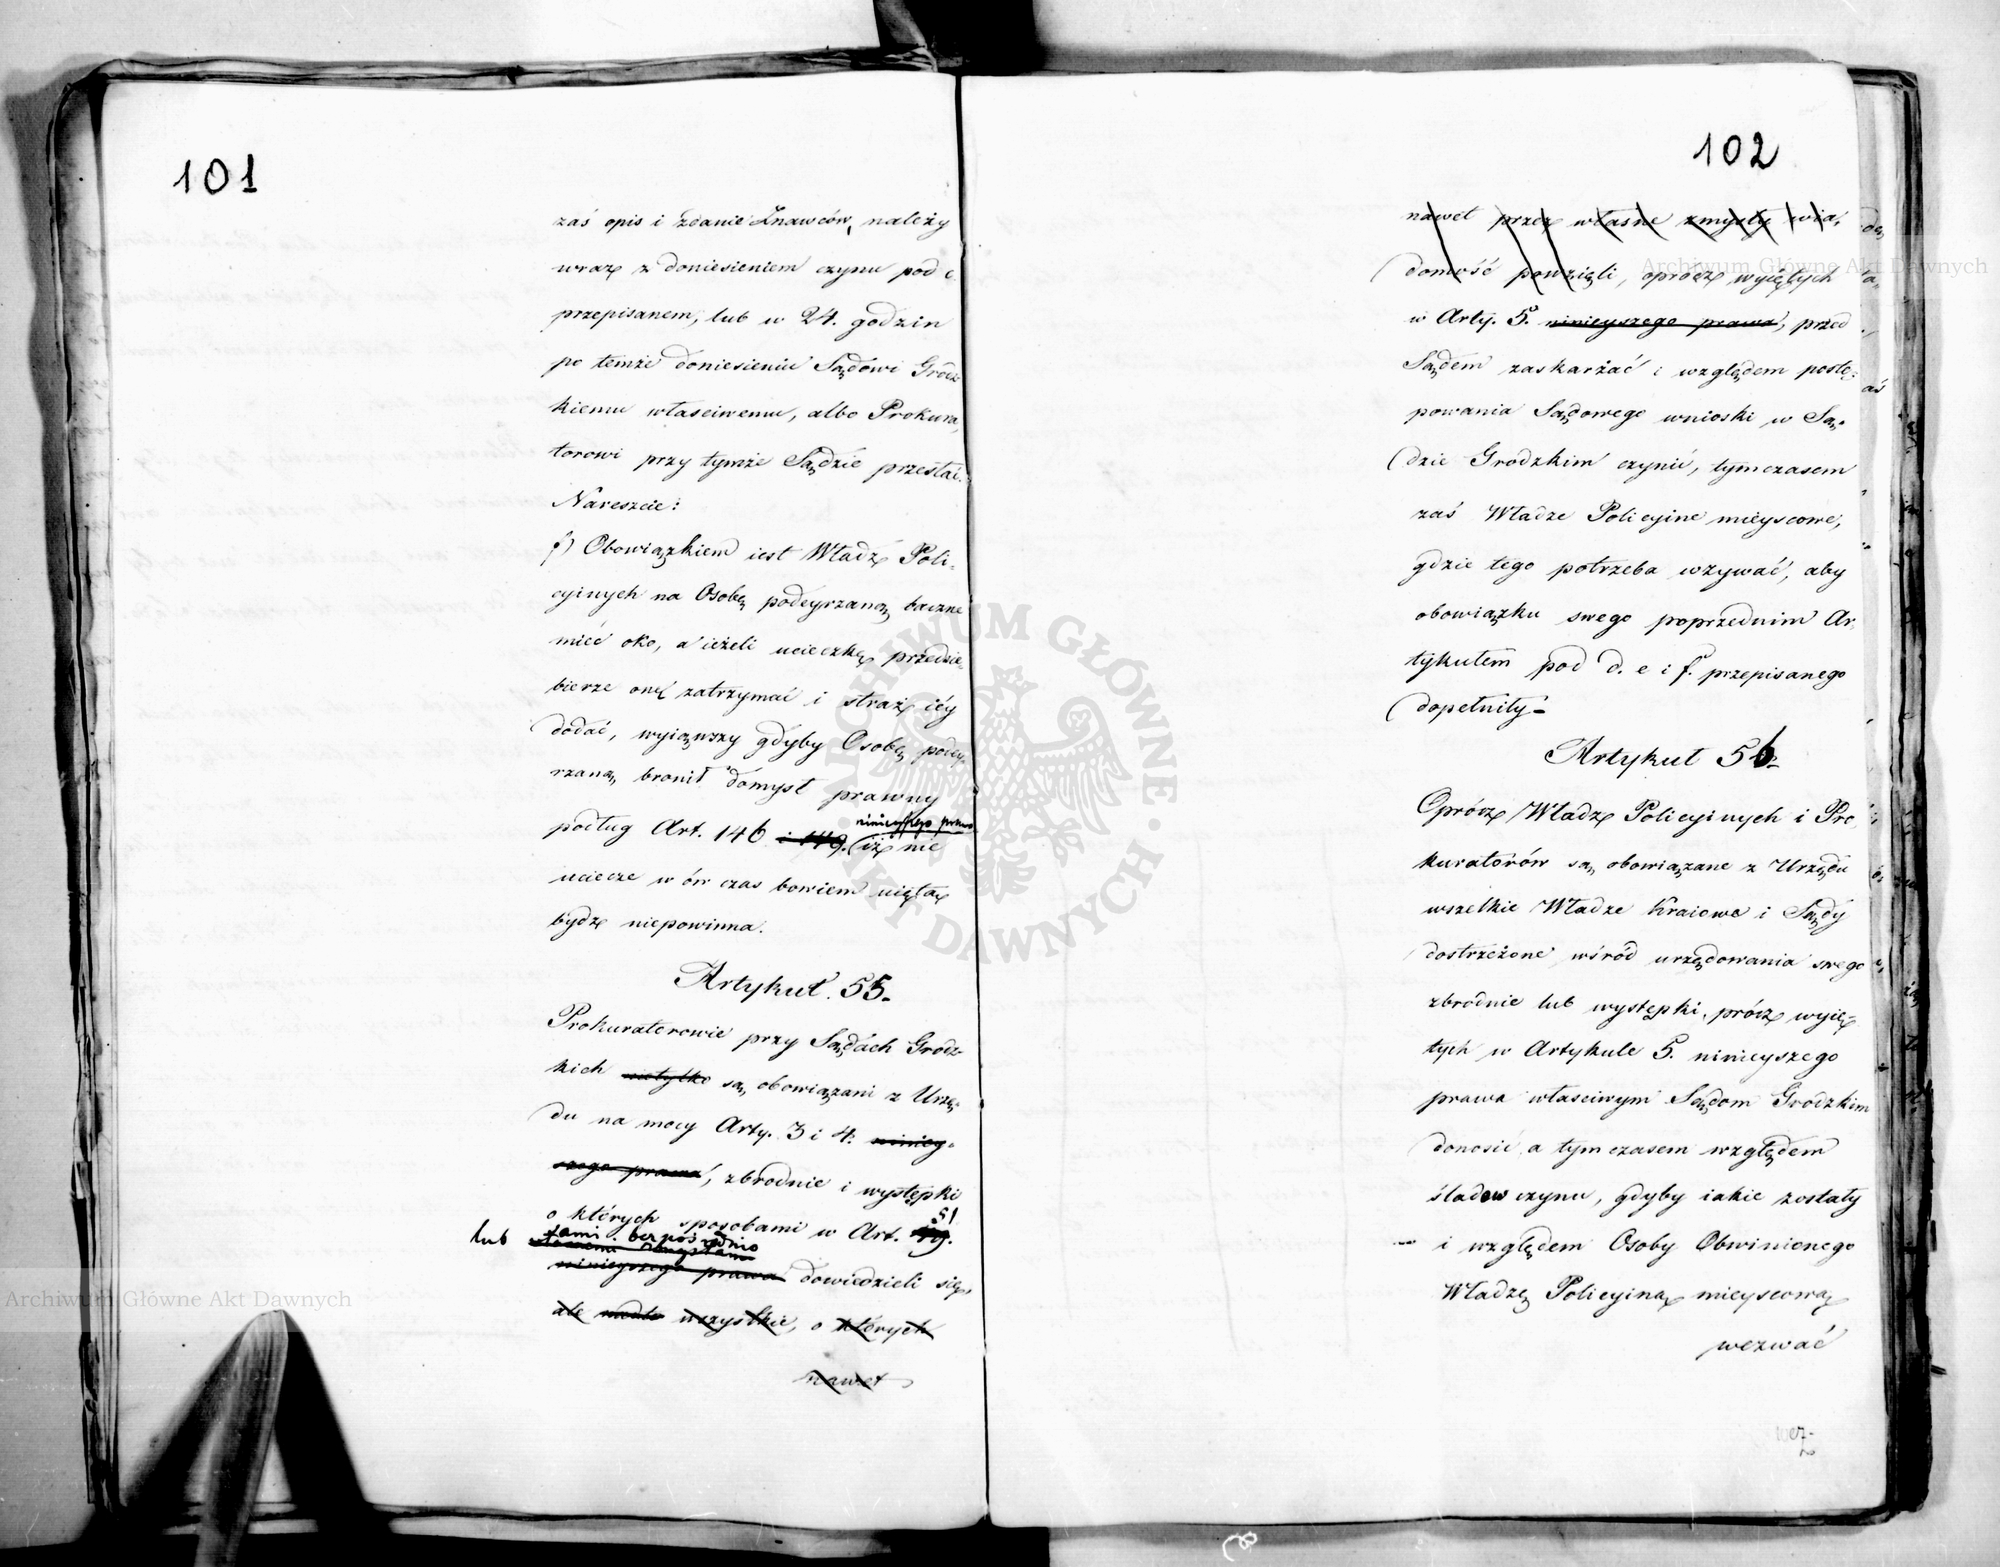 101
zaś opis i zdanie Znawców, należy
wraz z doniesieniem czynu pod c
przepisanem, lub w 24. godzin
po temże doniesieniu Sądowi Grodz
kiemu właściwemu, albo Prokura,
torowi przy tymże Sądzie przesłać.
Nareszcie:
f) Obowiązkiem iest Władz Poli-
cyinych na Osobę podeyrzaną baczne
mieć oko, a ieżeli ucieczkę przedsię-
bierze onę zatrzymać i straż iéy
dodać, wyiąwszy gdyby Osobę podey-
rzaną bronił domysł prawny
ninieyszego prawa
podług Art. 146 i 149. iż nie
uciecze w ów czas bowiem uiętą
bydź niepowinna.
Artykuł. 55.
Prokuratorowie przy Sądach Grodz-
kich nietylko są obowiązani z Urzę-
du na mocy Arty. 3 i 4. niniey-
szego prawa, zbrodnie i występki
51
o których sposobami w Art. 49.
lub sami bezpośrednio
ninieyszego prawa dowiedzieli się,
ale wszystkie, o których
nawet
102
nawet przez własne zmysły wia,
domość powzięli, oprócz wyiętych
w Arty. 5. ninieyszego prawa, przed
Sądem zaskarżać i względem postę-
powania Sądowego wnioski w Są-
dzie Grodzkim czynić, tymczasem
zaś Władze Policyine mieyscowe,
gdzie tego potrzeba wzywać, aby
obowiązku swego poprzednim Ar-
tykułem pod d. e i f. przepisanego
dopełniły.
Artykuł 56.
Oprócz Władz Policyinych i Pro,
kuratorów są obowiązane z Urzędu
wszelkie Władze Kraiowe i Sądy
dostrzeżone wśród urzędowania swego
zbrodnie lub występki, prócz wyię-
tych w Artykule 5. ninieyszego
prawa właściwym Sądom Grodzkim
donosić a tym czasem względem
śladów czynu, gdyby iakie zostały
i względem Osoby Obwinionego
Władzę Policyiną mieyscową
wezwać
Archiwum Główne Akt Dawnych
Archiwum Główne Akt Dawnych
ARCHIWUM GŁÓWNE · AKT DAWNYCH ·